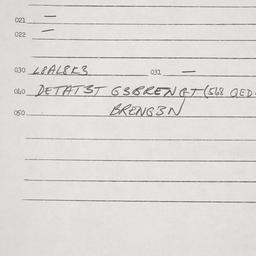 021 —
022 —
030 L8AL8K3 031 —
040 DETAT3T G3BRENGT (568 QED
050 BRENG3N